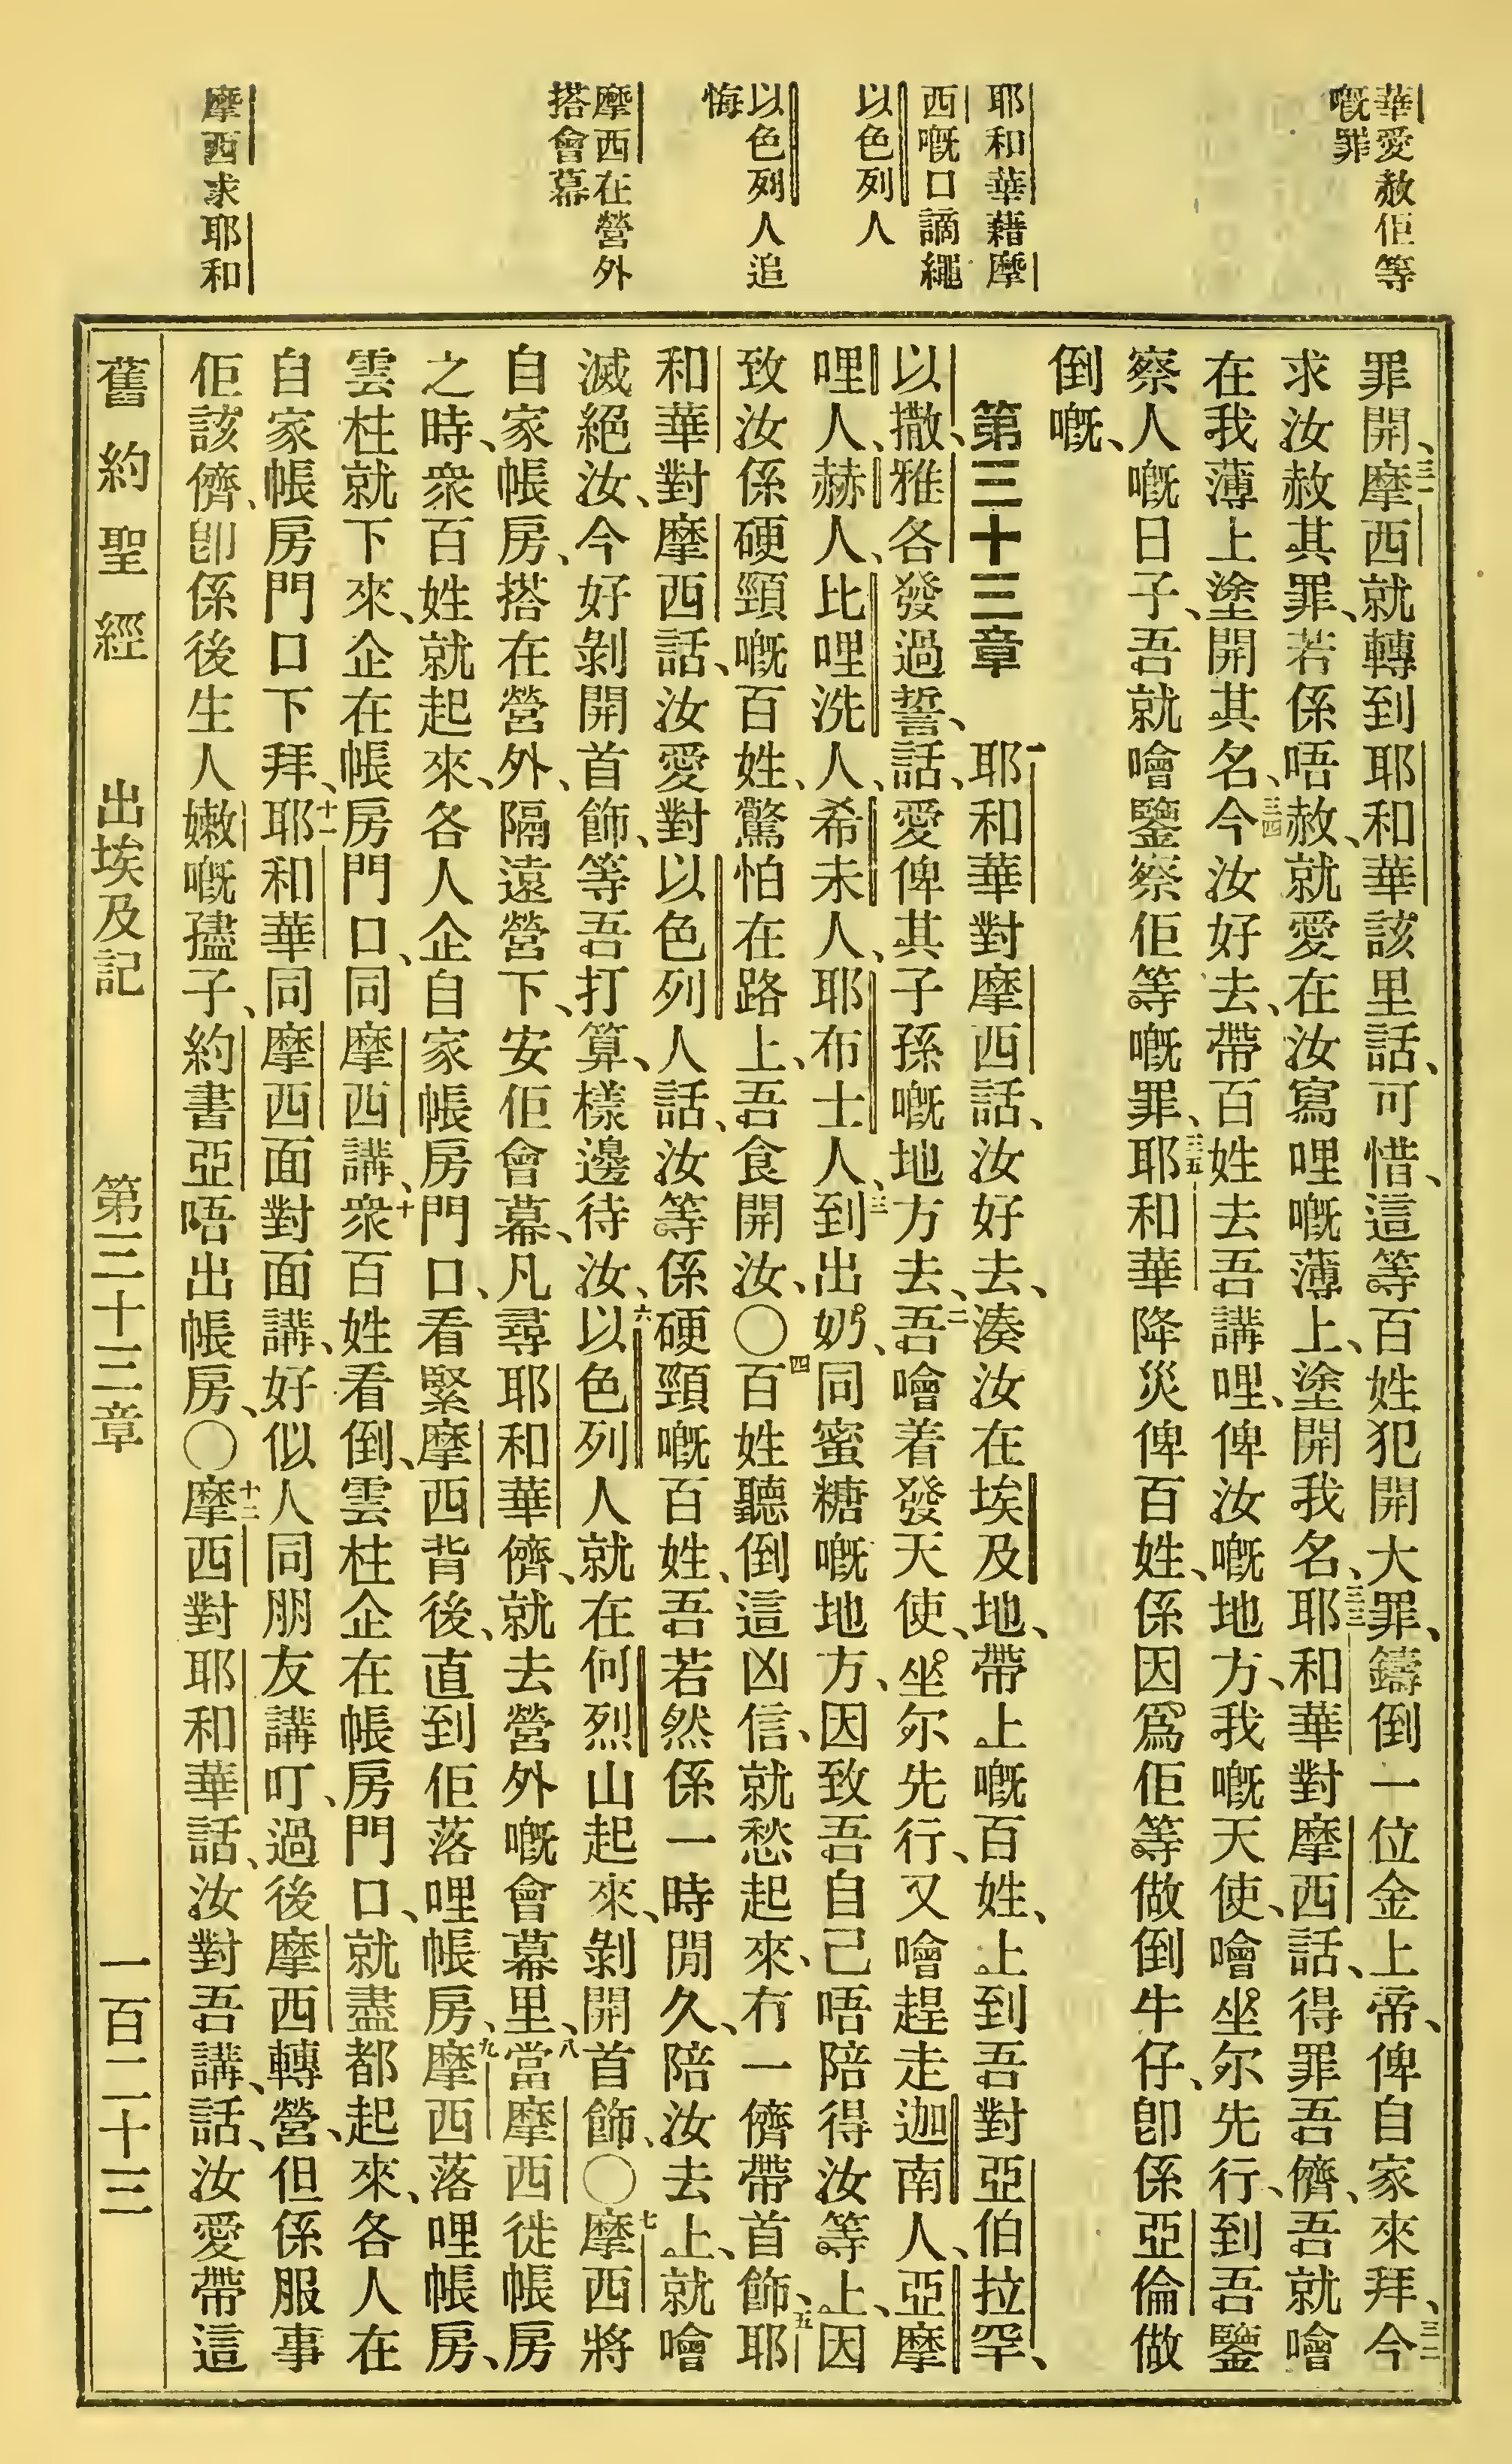 華愛赦佢等
嘅罪
耶和華藉摩
西嘅口謫繩
以色列人
以色列人追
悔
摩西在營外
搭會幕
摩西求耶和
罪開、三一摩西就轉到耶和華該里話、可惜、這等百姓犯開大罪、鑄倒一位金上帝、俾自家來拜、三二今
求汝赦其罪、若係唔赦、就愛在汝寫哩嘅薄上、塗開我名、三三耶和華對摩西話、得罪吾儕、吾就噲
在我薄上塗開其名、三四今汝好去、帶百姓去吾講哩、俾汝嘅地方、我嘅天使、噲坐尔先行、到吾鑒
察人嘅日子、吾就噲鑒察佢等嘅罪、三五耶和華降災俾百姓、係因爲佢等做倒牛仔、卽係亞倫做
倒嘅、
第三十三章 一耶和華對摩西話、汝好去、湊汝在埃及地、帶上嘅百姓、上到吾對亞伯拉罕、
以撒、雅各發過誓、話、愛俾其子孫嘅地方去、二吾噲着發天使、坐尔先行、又噲趕走迦南人、亞摩
哩人、赫人、比哩洗人、希未人、耶布士人、三到出奶、同蜜糖嘅地方、因致吾自己唔陪得汝等上、因
致汝係硬頸嘅百姓、驚怕在路上、吾食開汝、〇四百姓聽倒這凶信、就愁起來、冇一儕帶首飾、五耶
和華對摩西話、汝愛對以色列人話、汝等係硬頸嘅百姓、吾若然係一時間久、陪汝去上、就噲
滅絕汝、今好剝開首飾、等吾打算、樣邊待汝、六以色列人就在何烈山起來、剝開首飾、〇七摩西將
自家帳房、搭在營外、隔遠營下、安佢會幕、凡尋耶和華儕、就去營外嘅會幕里、八當摩西徙帳房
之時、衆百姓就起來、各人企自家帳房門口、看緊摩西背後、直到佢落哩帳房、九摩西落哩帳房、
雲柱就下來、企在帳房門口、同摩西講、十衆百姓看倒、雲柱企在帳房門口、就盡都起來、各人在
自家帳房門口下拜、十一耶和華同摩西面對面講、好似人同朋友講叮、過後摩西轉營、但係服事
佢該儕、卽係後生人嫩嘅孻子、約書亞唔出帳房、〇十二摩西對耶和華話、汝對吾講、話、汝愛帶這
舊約聖經 出埃及記 第三十三章 一百二十三